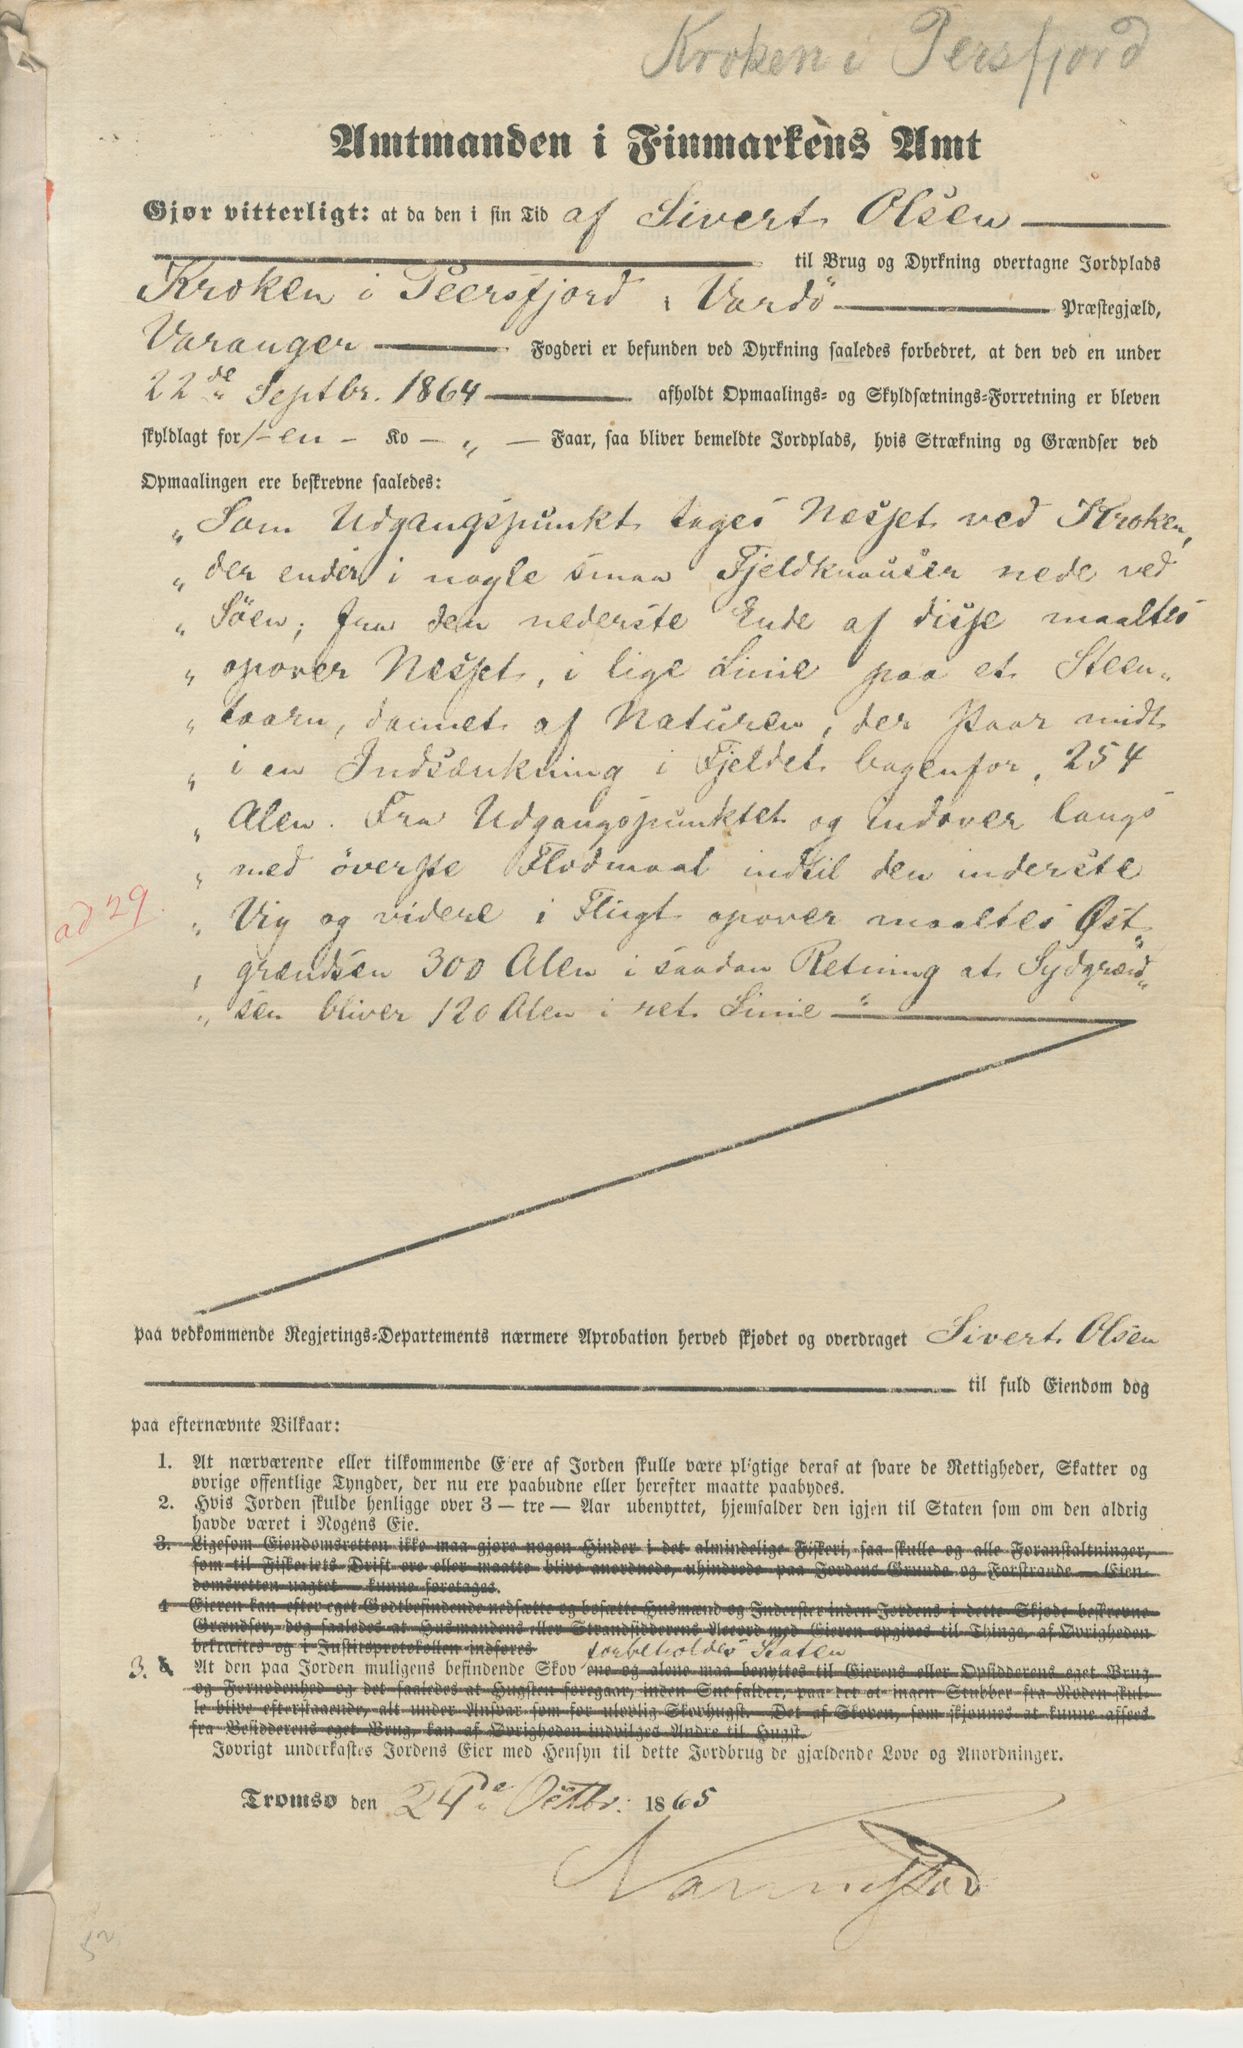 Kroken i Persfjord
Amtmanden i Finmarkens Amt
Gjør vitterligt: at da den i sin Tid af Sivert Olsen
til Brug og Dyrkning overtagne Jordplads
Kroken i Peersfjord i Vardö Præstegjæld,
Varanger Fogderi er befunden ved Dyrkning saaledes forbedret, at den ved en under
22de Septbr. 1864 afholdt Opmaalings- og Skyldsætnings-Forretning er bleven
skyldlagt for 1 - en - Ko - „ - Faar, saa bliver bemeldte Jordplads, hvis Strækning og Grændser ved
Opmaalingen ere beskrevne saaledes:
„ Som Udgangspunkt tages Nesset ved Kroken,
„ der ender i nogle smaa Fjeldknauser nede ved
„ Söen; fra den nederste Ende af disse maaltes
„ opover Nesset, i lige Linie paa et Steen„
„ taarn, dannet af Naturen, der staar midt
„ i en Indsænkning i Fjeldet bagenfor, 254
„ Alen. Fra Udgangspunktet og indover langs
„ med överste Flodmaal indtil den inderste
ad 29.
„ Vig og videre i Flugt opover maaltes Øst„
„ grændsen 300 Alen i saadan Retning at Sydgrænd„
„ sen bliver 120 Alen i ret Linie „
paa vedkommende Regjerings-Departements nærmere Aprobation herved skjødet og overdraget Sivert Olsen
til fuld Eiendom dog
paa efternævnte Vilkaar:
1. At nærværende eller tilkommende Eiere af Jorden skulle være pligtige deraf at svare de Rettigheder, Skatter og
øvrige offentlige Tyngder, der nu ere paabudne eller herefter maatte paabydes.
2. Hvis Jorden skulde henligge over 3 — tre — Aar ubenyttet, hjemfalder den igjen til Staten som om den aldrig
havde været i Nogens Eie.
3. Ligesom Eiendomsretten ikke maa gjøre nogen Hinder i det almindelige Fiskeri, saa skulle og alle Foranstaltninger,
som til Fiskeriets Drift ere eller maatte blive anordnede, uhindrede paa Jordens Grunde og Forstrande — Eien-
domsretten uagtet — kunne foretages.
4 Eieren kan efter eget Godtbefindende nedsætte og bosætte Husmænd og Inderster inden Jordens i dette Skjøde beskrevne
Grændser, dog saaledes at Husmandens eller Strandsidderens Accord med Eieren opgives til Thinge, af Øvrigheden
bekræftes og i Justitsprotokollen indføres
forbeholdes Staten
3. At den paa Jorden muligens befindende Skov ene og alene maa benyttes til Eierens eller Opsidderens eget Brug
og Fornødenhed og det saaledes at Hugsten foregaar, inden Sne falder, paa det at ingen Stubber fra Roden skul-
le blive efterstaaende, alt under Ansvar som for ulovlig Skovhugst. Det af Skoven, som skjønnes at kunne afsees
fra Besidderens eget Brug, kan af Øvrigheden indvilges Andre til Hugst.
Iøvrigt underkastes Jordens Eier med Hensyn til dette Jordbrug de gjældende Love og Anordninger.
Tromsø den 24de Octbr. 1865
52